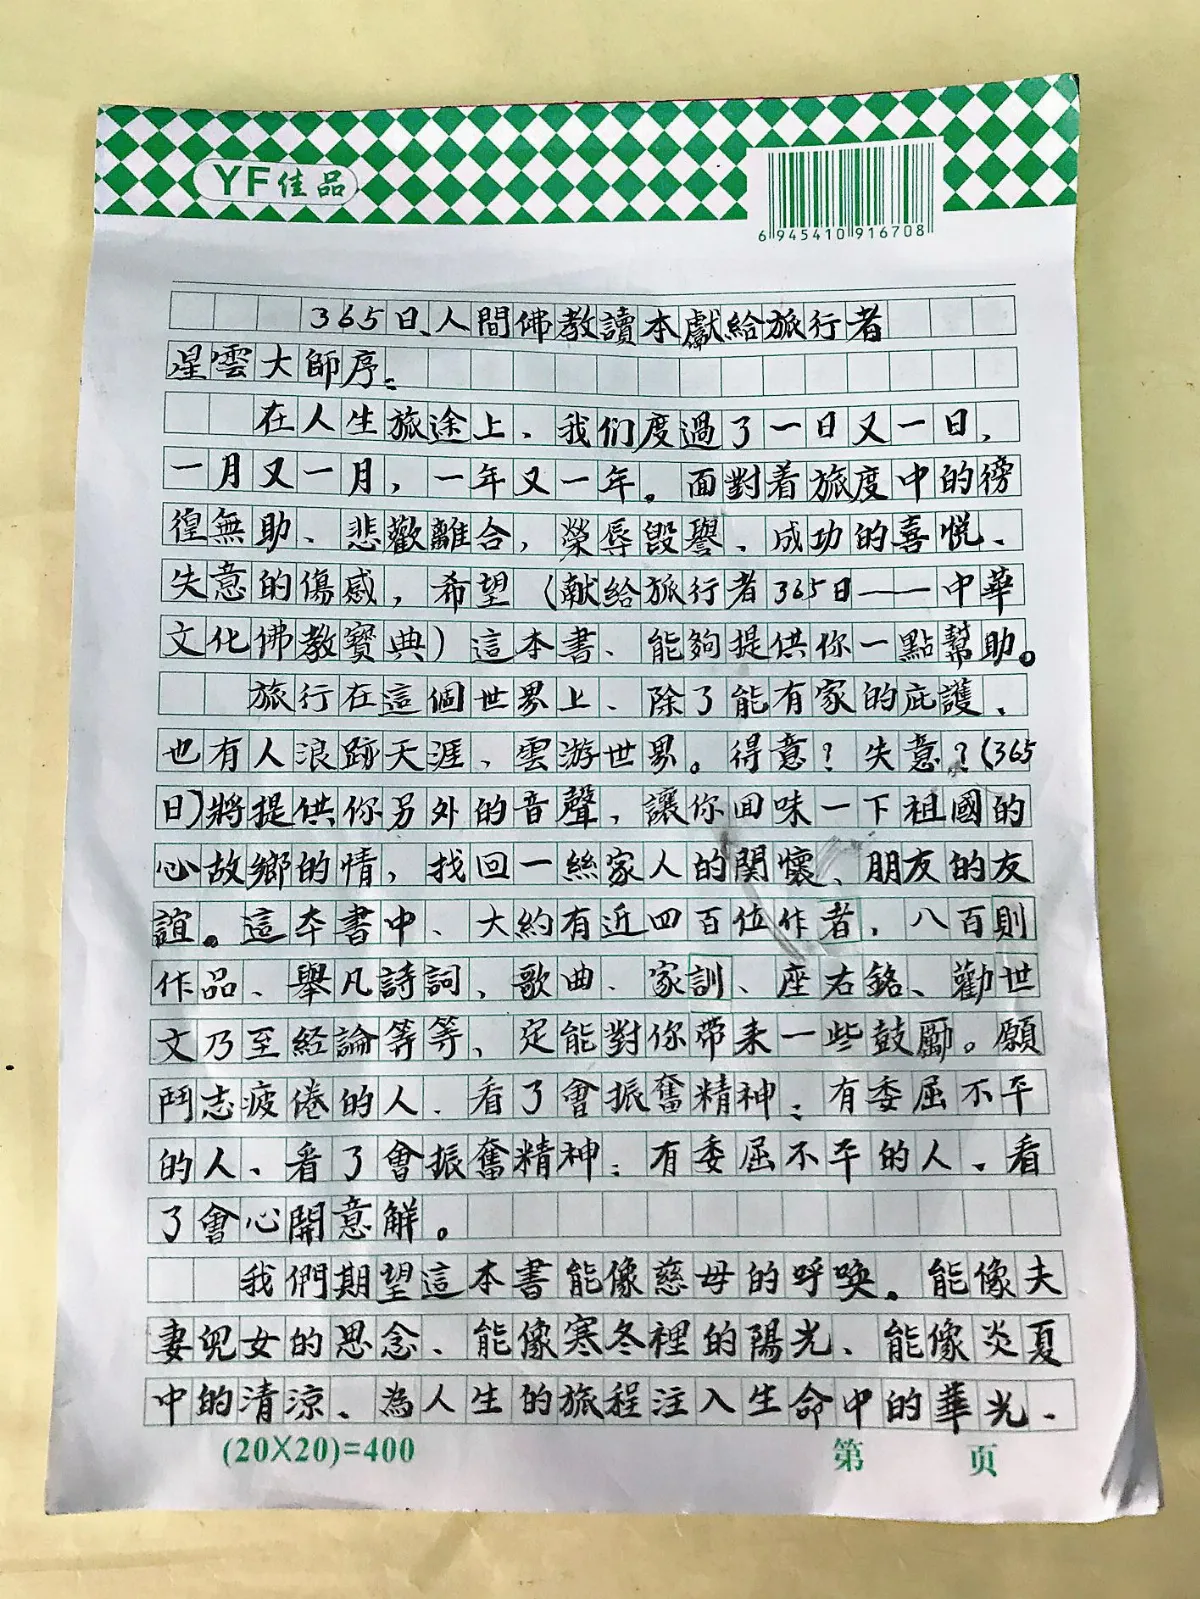 YF佳品
6 945410 916708
365日、人間佛教讀本獻給旅行者
星雲大師序:
在人生旅途上、我们度過了一日又一日,
一月又一月,一年又一年。面對着旅度中的徬
徨無助、悲歡離合,榮辱毀譽、成功的喜悅、
失意的傷感,希望(献給旅行者365日——中華
文化佛教寳典)這本書、能夠提供你一點幫助。
旅行在這個世界上、除了能有家的庇護、
也有人浪跡天涯、雲游世界。得意?失意?(365
日)將提供你另外的音聲,讓你回味一下祖國的
心故鄉的情,找回一絲家人的関懷、朋友的友
誼。這夲書中、大約有近四百位作者,八百則
作品、舉凡詩詞、歌曲、家訓、座右銘、勸世
文乃至経論等等、定能對你帶来一些鼓勵。願
鬥志疲倦的人、看了會振奮精神;有委屈不平
的人、看了會振奮精神;有委屈不平的人、看
了會心開意解。
我們期望這本書能像慈母的呼喚。能像夫
妻兒女的思念、能像寒冬裡的陽光、能像炎夏
中的清涼、為人生的旅程注入生命中的華光、
(20X20)=400 第 页